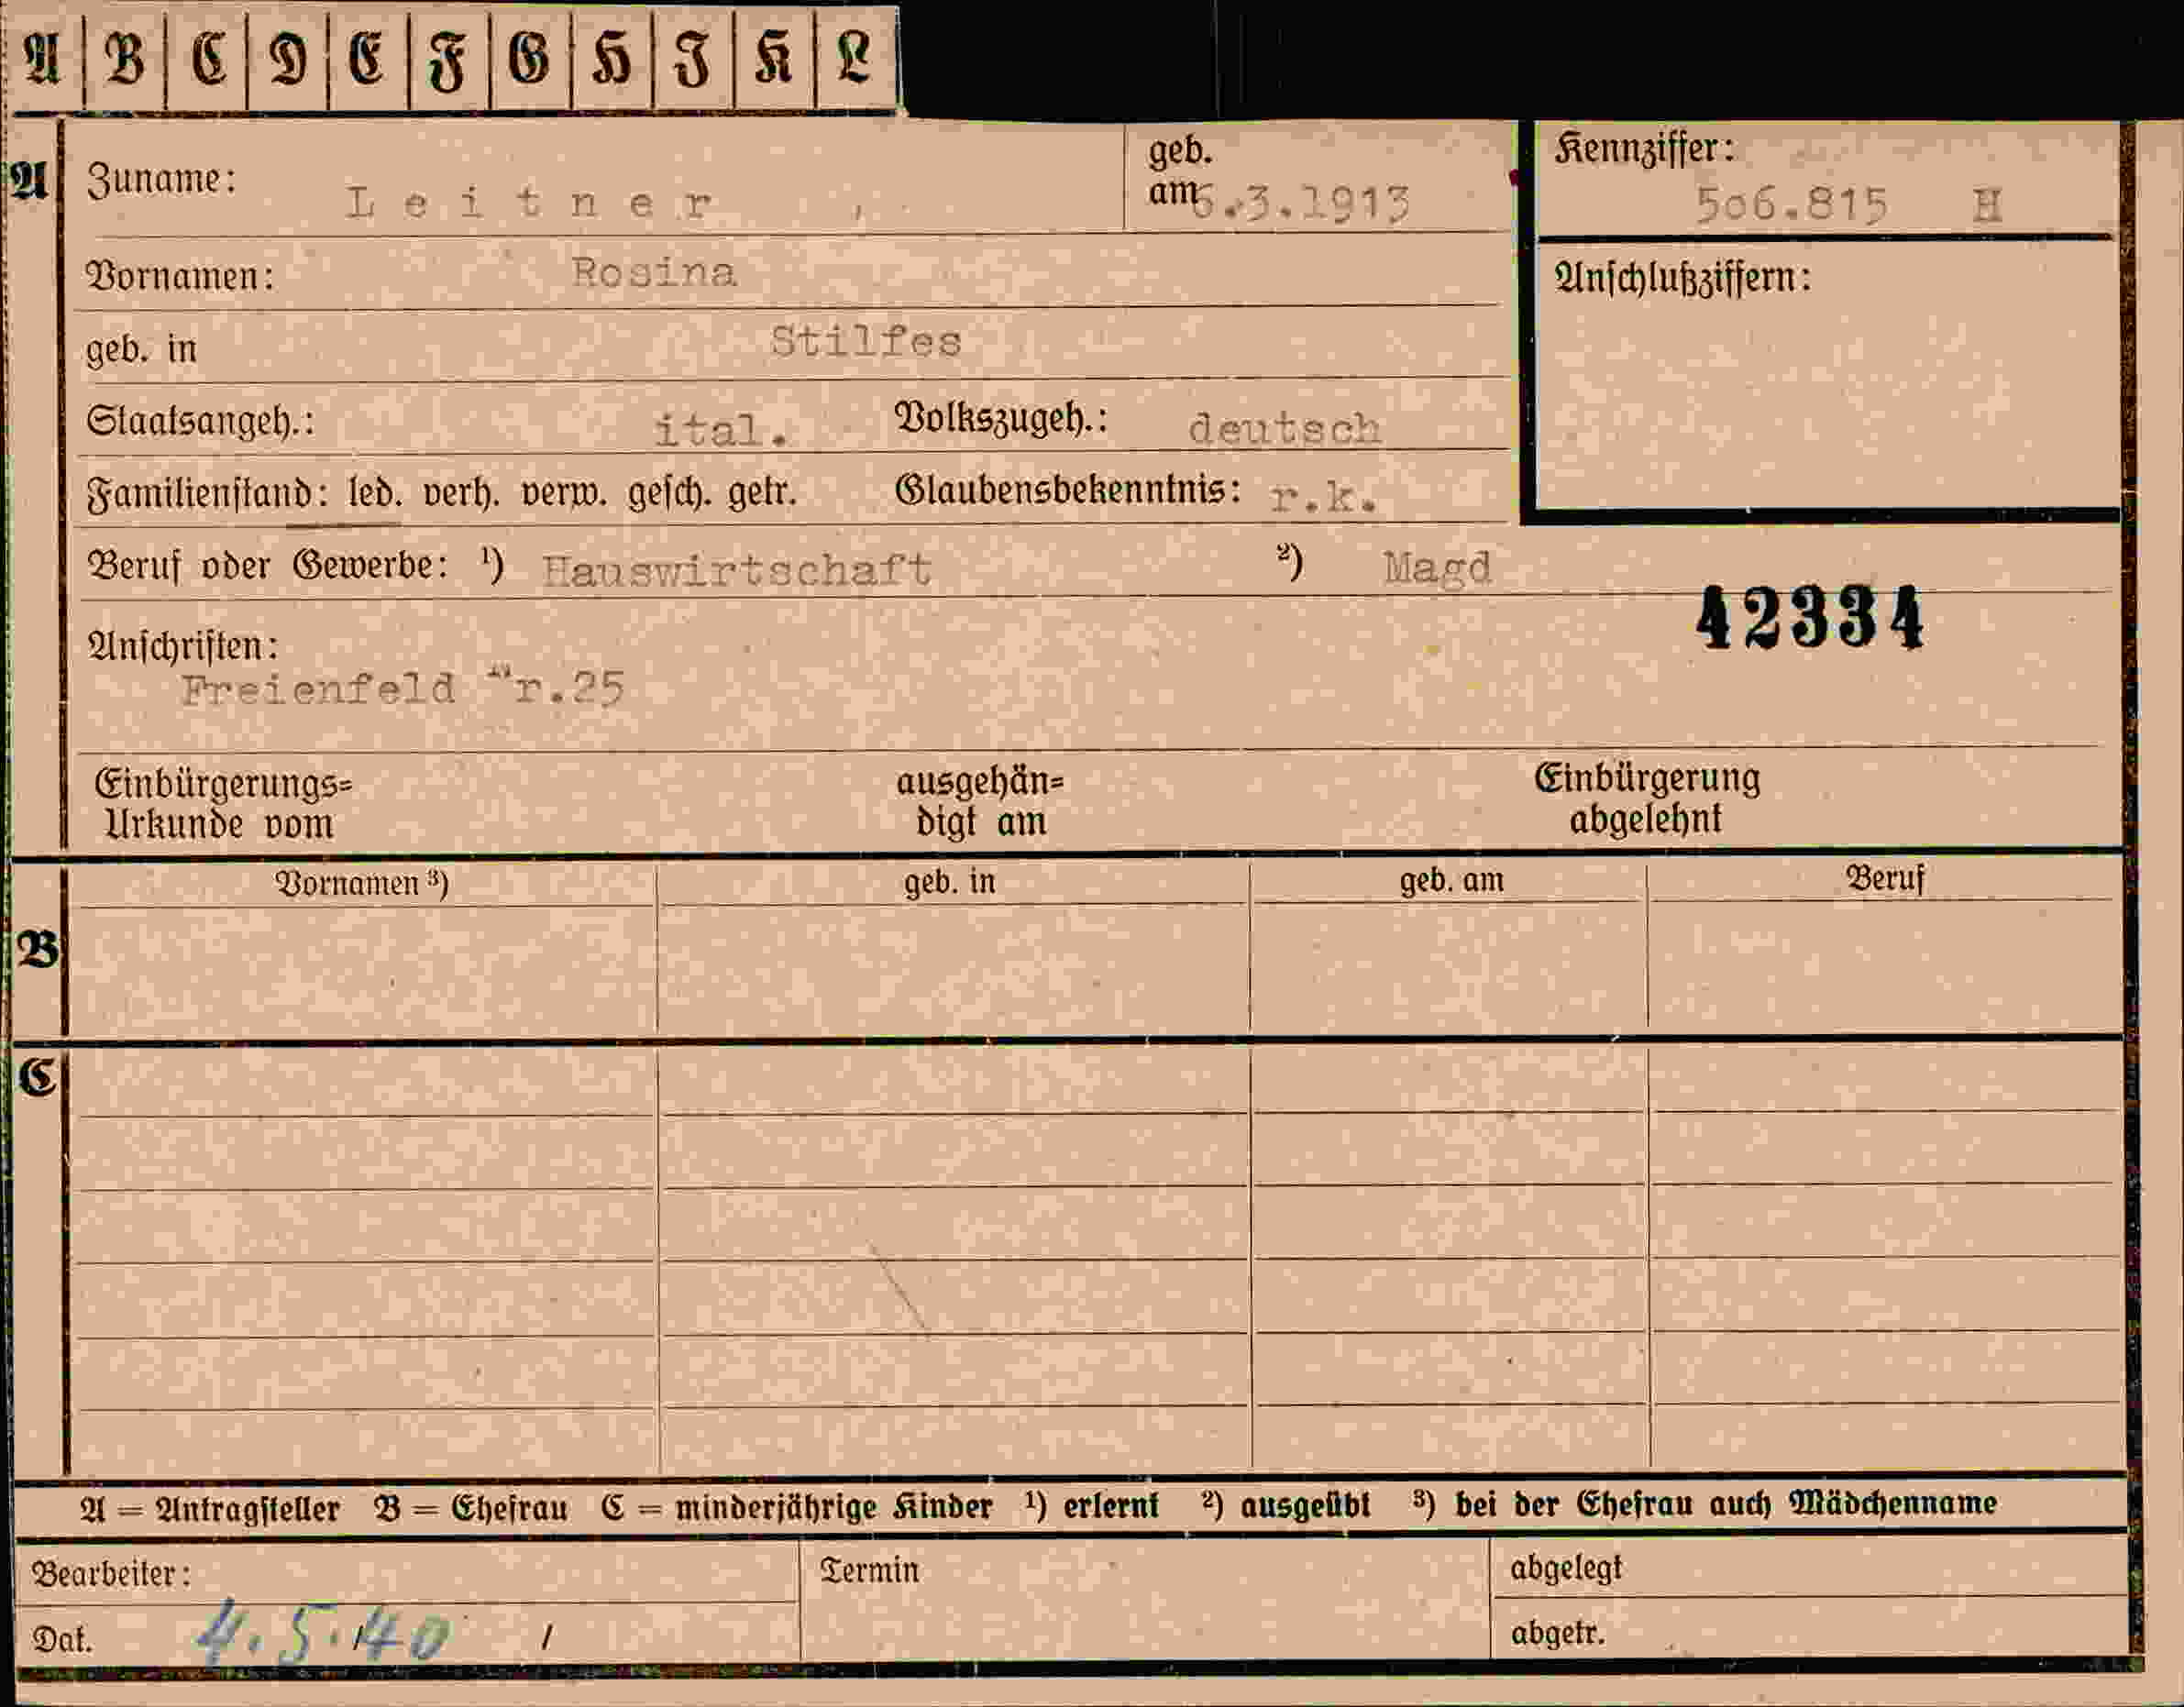 A B C D E F G H I K L
A Zuname: Leitner geb. am 6.3.1913 Kennziffer: 506.815 H
Vornamen: Rosina Anschlußziffern:
geb. in Stilfes
Staatsangeh.: ital. Volkszugeh.: deutsch
Familienstand: led. verh. verw. gesch. getr. Glaubensbekenntnis: r.k.
Beruf oder Gewerbe: ¹) Hauswirtschaft ²) Magd
42334
Anschriften:
Freienfeld Nr.25
Einbürgerungs= ausgehän= Einbürgerung
Urkunde vom digt am abgelehnt
Vornamen ³) geb. in geb. am Beruf
B
C
A = Antragsteller B = Ehefrau C = minderjährige Kinder ¹) erlernt ²) ausgeübt ³) bei der Ehefrau auch Mädchenname
Bearbeiter: Termin abgelegt
Dat. 4.5.40 / abgetr.